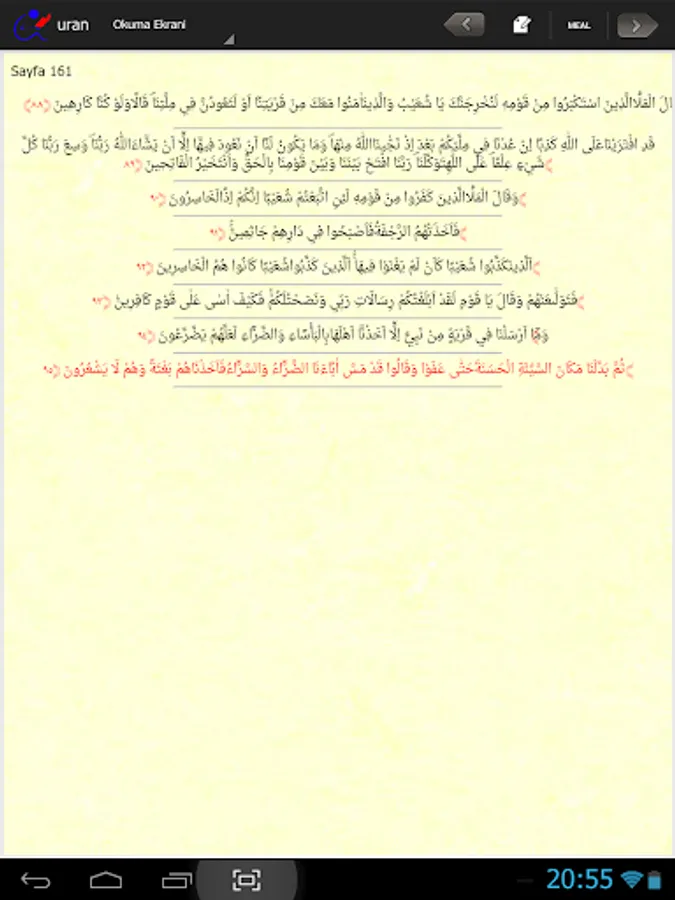 uran
Okuma Ekrani
MEAL
Sayfa 161
ـَالَ الْمَلَاُالَّذينَ اسْتَكْبَرُوا مِنْ قَوْمِه لَنُخْرِجَنَّكَ يَا شُعَيْبُ وَالَّذينَاٰمَنُوا مَعَكَ مِنْ قَرْيَتِنَا اَوْ لَتَعُودُنَّ فى مِلَّتِنَا قَالَاَوَلَوْ كُنَّا كَارِهينَ ﴿٨٨﴾
قَدِ افْتَرَيْنَاعَلَى اللّٰهِ كَذِبًا اِنْ عُدْنَا فى مِلَّتِكُمْ بَعْدَ اِذْ نَجّٰينَااللّٰهُ مِنْهَا وَمَا يَكُونُ لَنَا اَنْ نَعُودَ فيهَا اِلَّا اَنْ يَشَاءَاللّٰهُ رَبُّنَا وَسِعَ رَبُّنَا كُلَّ
شَيْءٍ عِلْمًا عَلَى اللّٰهِتَوَكَّلْنَا رَبَّنَا افْتَحْ بَيْنَنَا وَبَيْنَ قَوْمِنَا بِالْحَقِّ وَاَنْتَخَيْرُ الْفَاتِحينَ ﴿٨٩﴾
وَقَالَ الْمَلَاُالَّذينَ كَفَرُوا مِنْ قَوْمِه لَئِنِ اتَّبَعْتُمْ شُعَيْبًا اِنَّكُمْ اِذًالَخَاسِرُونَ ﴿٩٠﴾
فَاَخَذَتْهُمُ الرَّجْفَةُفَاَصْبَحُوا فى دَارِهِمْ جَاثِمينَ ﴿٩١﴾
اَلَّذينَكَذَّبُوا شُعَيْبًا كَاَنْ لَمْ يَغْنَوْا فيهَا اَلَّذينَ كَذَّبُواشُعَيْبًا كَانُوا هُمُ الْخَاسِرينَ ﴿٩٢﴾
فَتَوَلّٰىعَنْهُمْ وَقَالَ يَا قَوْمِ لَقَدْ اَبْلَغْتُكُمْ رِسَالَاتِ رَبّى وَنَصَحْتُلَكُمْ فَكَيْفَ اٰسٰى عَلٰى قَوْمٍ كَافِرينَ ﴿٩٣﴾
وَمَا اَرْسَلْنَا فى قَرْيَةٍ مِنْ نَبِىٍّ اِلَّا اَخَذْنَا اَهْلَهَابِالْبَاْسَاءِ وَالضَّرَّاءِ لَعَلَّهُمْ يَضَّرَّعُونَ ﴿٩٤﴾
ثُمَّ بَدَّلْنَا مَكَانَ السَّيِّئَةِ الْحَسَنَةَحَتّٰى عَفَوْا وَقَالُوا قَدْ مَسَّ اٰبَاءَنَا الضَّرَّاءُ وَالسَّرَّاءُفَاَخَذْنَاهُمْ بَغْتَةً وَهُمْ لَا يَشْعُرُونَ ﴿٩٥﴾
20:55